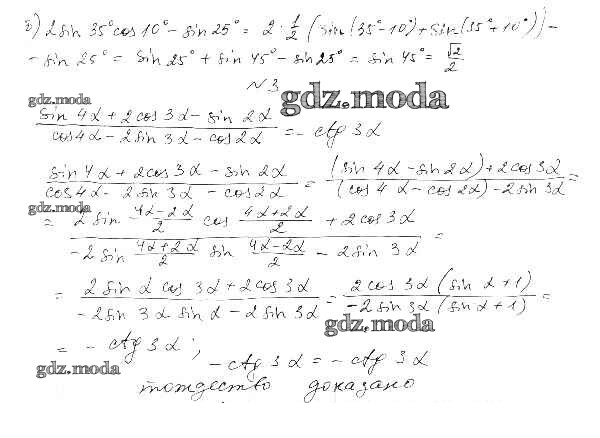 б) 2 sin 35° cos 10° - sin 25° = 2 · 1/2 (sin (35° - 10°) + sin (35° + 10°)) -
- sin 25° = sin 25° + sin 45° - sin 25° = sin 45° = √2/2
N 3
gdz.moda
gdz.moda
(sin 4α + 2 cos 3α - sin 2α)/(cos 4α - 2 sin 3α - cos 2α) = - ctg 3α
(sin 4α + 2 cos 3α - sin 2α)/(cos 4α - 2 sin 3α - cos 2α) = ((sin 4α - sin 2α) + 2 cos 3α)/((cos 4α - cos 2α) - 2 sin 3α) =
gdz.moda
= (2 sin (4α - 2α)/2 cos (4α + 2α)/2 + 2 cos 3α)/(-2 sin (4α + 2α)/2 sin (4α - 2α)/2 - 2 sin 3α) =
= (2 sin α cos 3α + 2 cos 3α)/(-2 sin 3α sin α - 2 sin 3α) = (2 cos 3α (sin α + 1))/(-2 sin 3α (sin α + 1)) =
gdz.moda
= - ctg 3α ;
- ctg 3α = - ctg 3α
gdz.moda
тождество доказано